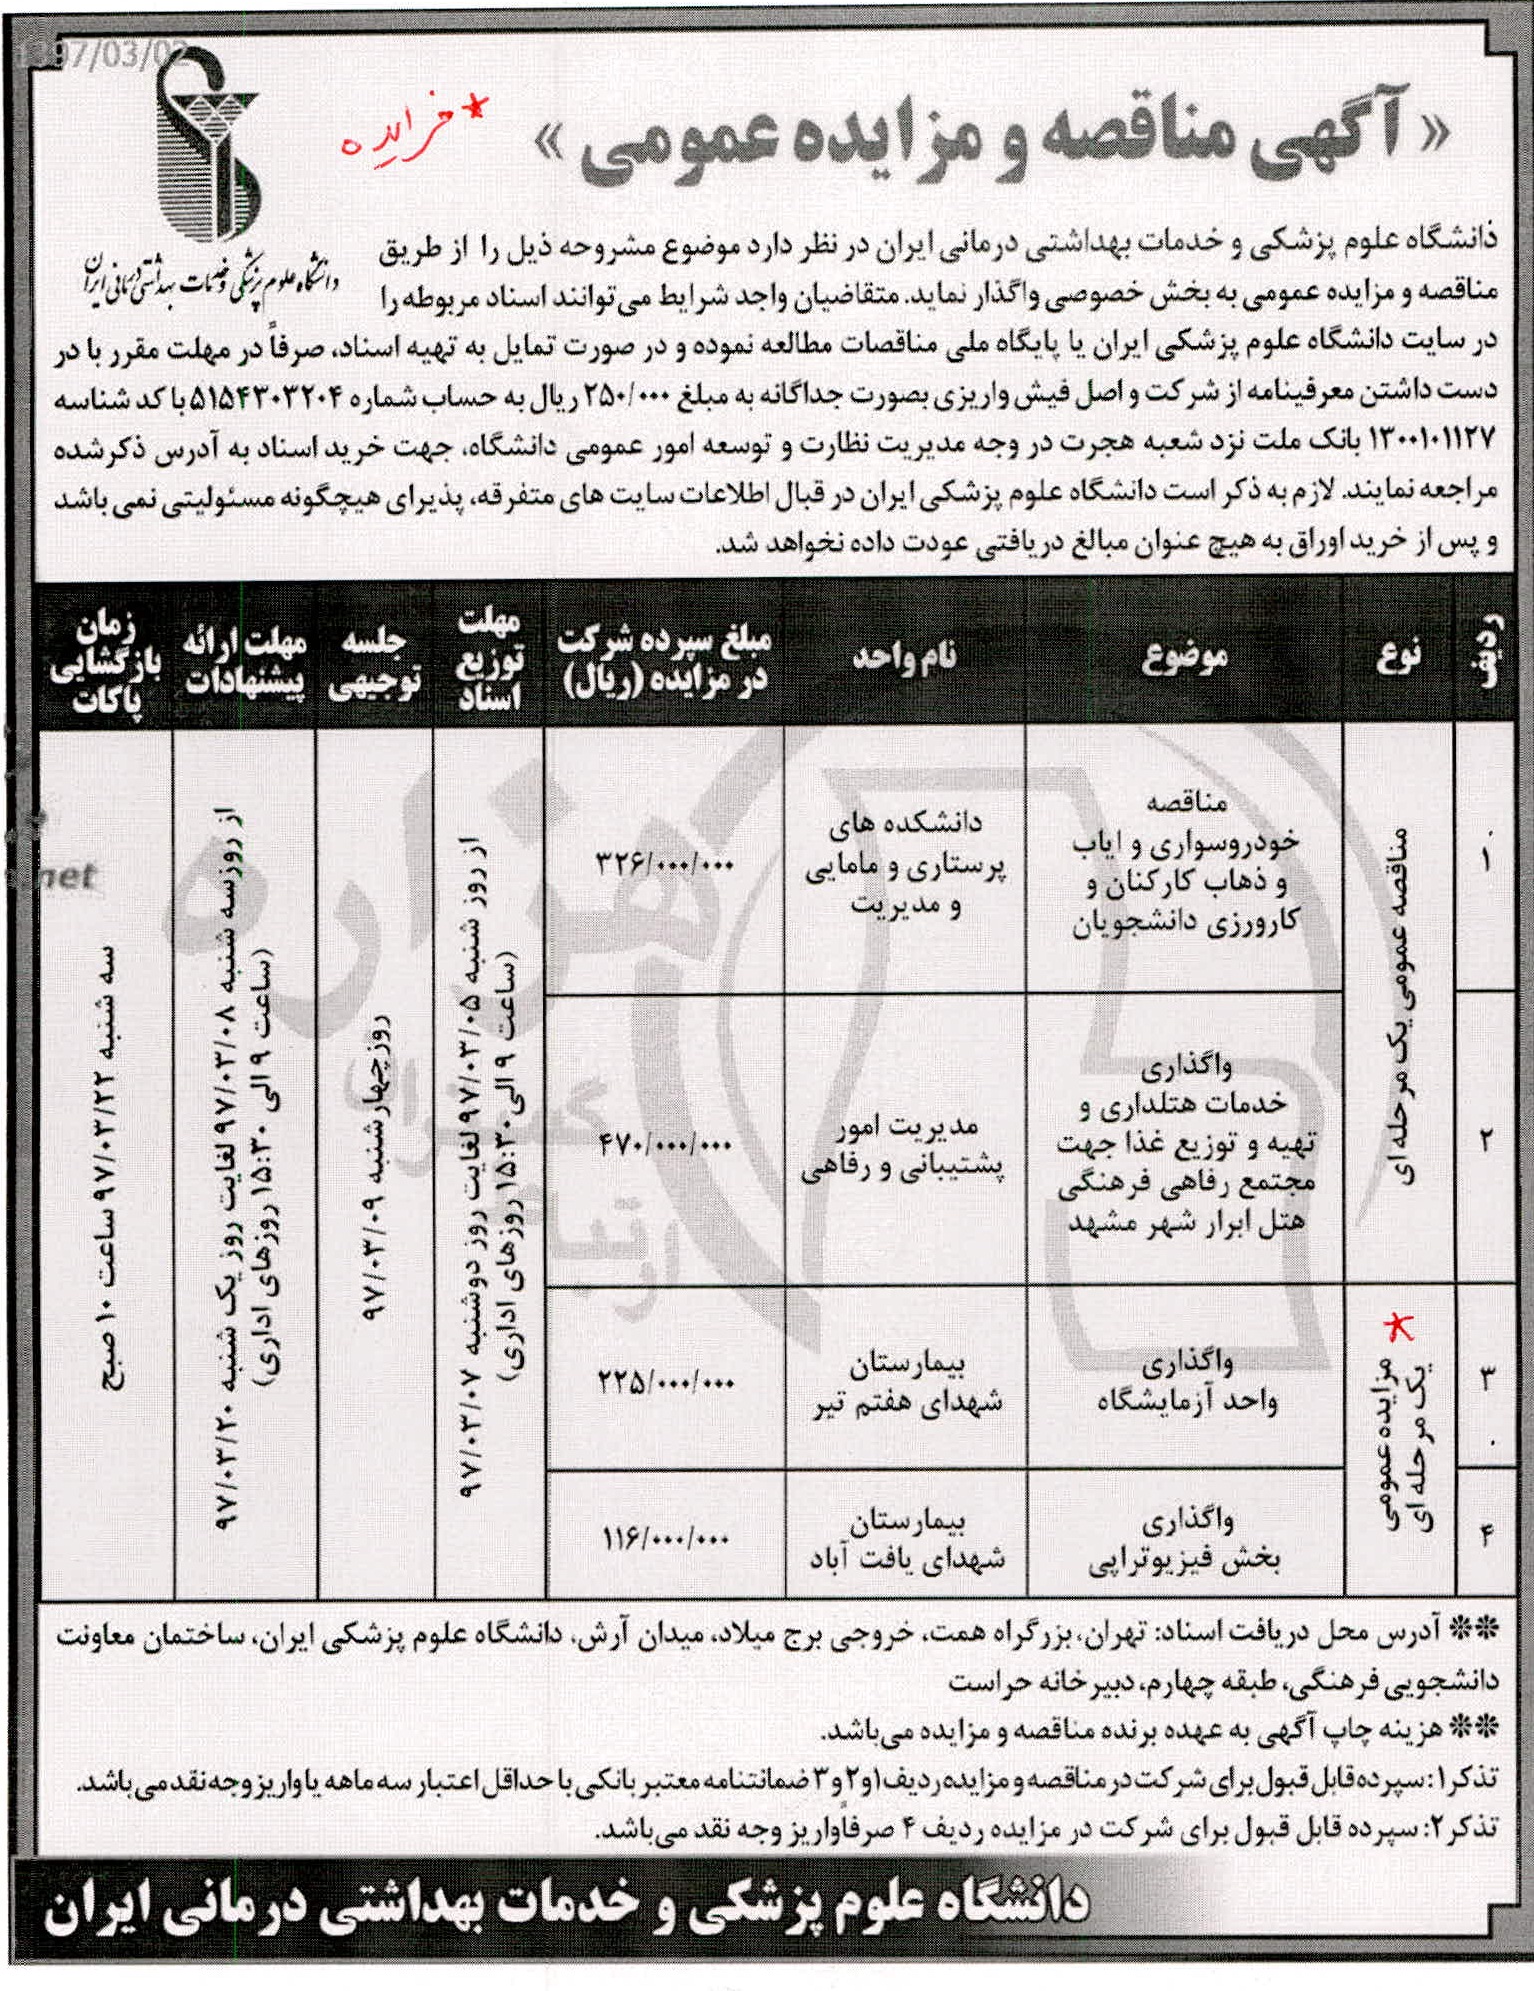 1397/03/02
« آگهی مناقصه و مزایده عمومی »
* مزایده
دانشگاه علوم پزشکی و خدمات بهداشتی درمانی ایران
دانشگاه علوم پزشکی و خدمات بهداشتی درمانی ایران در نظر دارد موضوع مشروحه ذیل را از طریق
مناقصه و مزایده عمومی به بخش خصوصی واگذار نماید. متقاضیان واجد شرایط می‌توانند اسناد مربوطه را
در سایت دانشگاه علوم پزشکی ایران یا پایگاه ملی مناقصات مطالعه نموده و در صورت تمایل به تهیه اسناد، صرفاً در مهلت مقرر با در
دست داشتن معرفینامه از شرکت و اصل فیش واریزی بصورت جداگانه به مبلغ ۲۵۰/۰۰۰ ریال به حساب شماره ۵۱۵۴۳۰۳۲۰۴ با کد شناسه
۱۳۰۰۱۰۱۱۲۷ بانک ملت نزد شعبه هجرت در وجه مدیریت نظارت و توسعه امور عمومی دانشگاه، جهت خرید اسناد به آدرس ذکرشده
مراجعه نمایند. لازم به ذکر است دانشگاه علوم پزشکی ایران در قبال اطلاعات سایت های متفرقه، پذیرای هیچگونه مسئولیتی نمی باشد
و پس از خرید اوراق به هیچ عنوان مبالغ دریافتی عودت داده نخواهد شد.
ردیف
نوع
موضوع
نام واحد
مبلغ سپرده شرکت
در مزایده (ریال)
مهلت
توزیع
اسناد
جلسه
توجیهی
مهلت ارائه
پیشنهادات
زمان
بازگشایی
پاکات
۱
مناقصه عمومی یک مرحله ای
مناقصه
خودروسواری و ایاب
و ذهاب کارکنان و
کارورزی دانشجویان
دانشکده های
پرستاری و مامایی
و مدیریت
۳۲۶/۰۰۰/۰۰۰
از روز شنبه ۹۷/۰۳/۰۵ لغایت روز دوشنبه ۹۷/۰۳/۰۷
(ساعت ۹ الی ۱۵:۳۰ روزهای اداری)
روزچهارشنبه ۹۷/۰۳/۰۹
از روزسه شنبه ۹۷/۰۳/۰۸ لغایت روز یک شنبه ۹۷/۰۳/۲۰
(ساعت ۹ الی ۱۵:۳۰ روزهای اداری)
سه شنبه ۹۷/۰۳/۲۲ ساعت ۱۰ صبح
۲
واگذاری
خدمات هتلداری و
تهیه و توزیع غذا جهت
مجتمع رفاهی فرهنگی
هتل ابرار شهر مشهد
مدیریت امور
پشتیبانی و رفاهی
۴۷۰/۰۰۰/۰۰۰
۳
*
مزایده عمومی
یک مرحله ای
واگذاری
واحد آزمایشگاه
بیمارستان
شهدای هفتم تیر
۲۲۵/۰۰۰/۰۰۰
۴
واگذاری
بخش فیزیوتراپی
بیمارستان
شهدای یافت آباد
۱۱۶/۰۰۰/۰۰۰
هزاره
.net
** آدرس محل دریافت اسناد: تهران، بزرگراه همت، خروجی برج میلاد، میدان آرش، دانشگاه علوم پزشکی ایران، ساختمان معاونت
دانشجویی فرهنگی، طبقه چهارم، دبیرخانه حراست
** هزینه چاپ آگهی به عهده برنده مناقصه و مزایده می‌باشد.
تذکر۱: سپرده قابل قبول برای شرکت در مناقصه و مزایده ردیف ۱و۲ و ۳ ضمانتنامه معتبر بانکی با حداقل اعتبار سه ماهه یا واریز وجه نقد می باشد.
تذکر۲: سپرده قابل قبول برای شرکت در مزایده ردیف ۴ صرفاًواریز وجه نقد می‌باشد.
دانشگاه علوم پزشکی و خدمات بهداشتی درمانی ایران